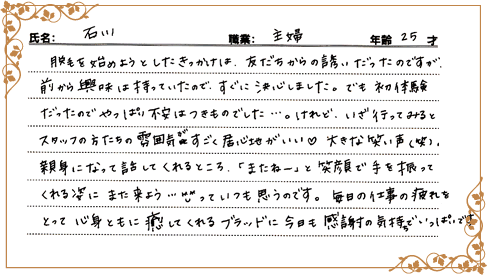 氏名: 石川 職業: 主婦 年齢 25 才
脱毛を始めようとしたきっかけは、友だちからの誘いだったのですが、
前から興味は持っていたので、すぐに決心しました。でも初体験
だったのでやっぱり不安はつきものでした…。けれど、いざ行ってみると
スタッフの方たちの雰囲気がすごく居心地がいい♡ 大きな笑い声(笑)、
親身になって話してくれるところ、「またねー」と笑顔で手を振って
くれる姿に また来よう…っていつも思うのです。毎日の仕事の疲れを
とって 心身ともに癒してくれるブラッドに今日も感謝の気持ちでいっぱいです